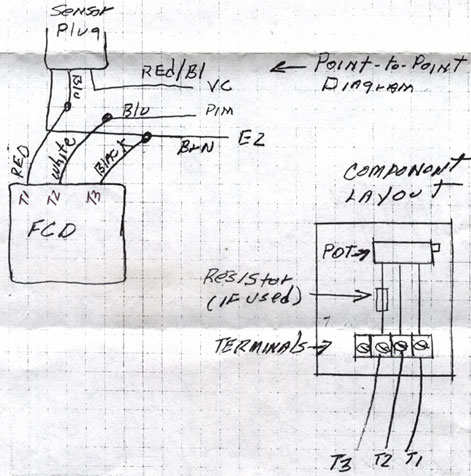 Sensor
Plug
Blu
RED/Bl
VC
← Point-to-Point
Diagram
Blu
PIM
RED
White
Black
BRN
E2
T1 T2 T3
FCD
COMPONONT
LAYOUT
POT→
RESISTOR→
(IF USED)
TERMINALS→
T3 T2 T1